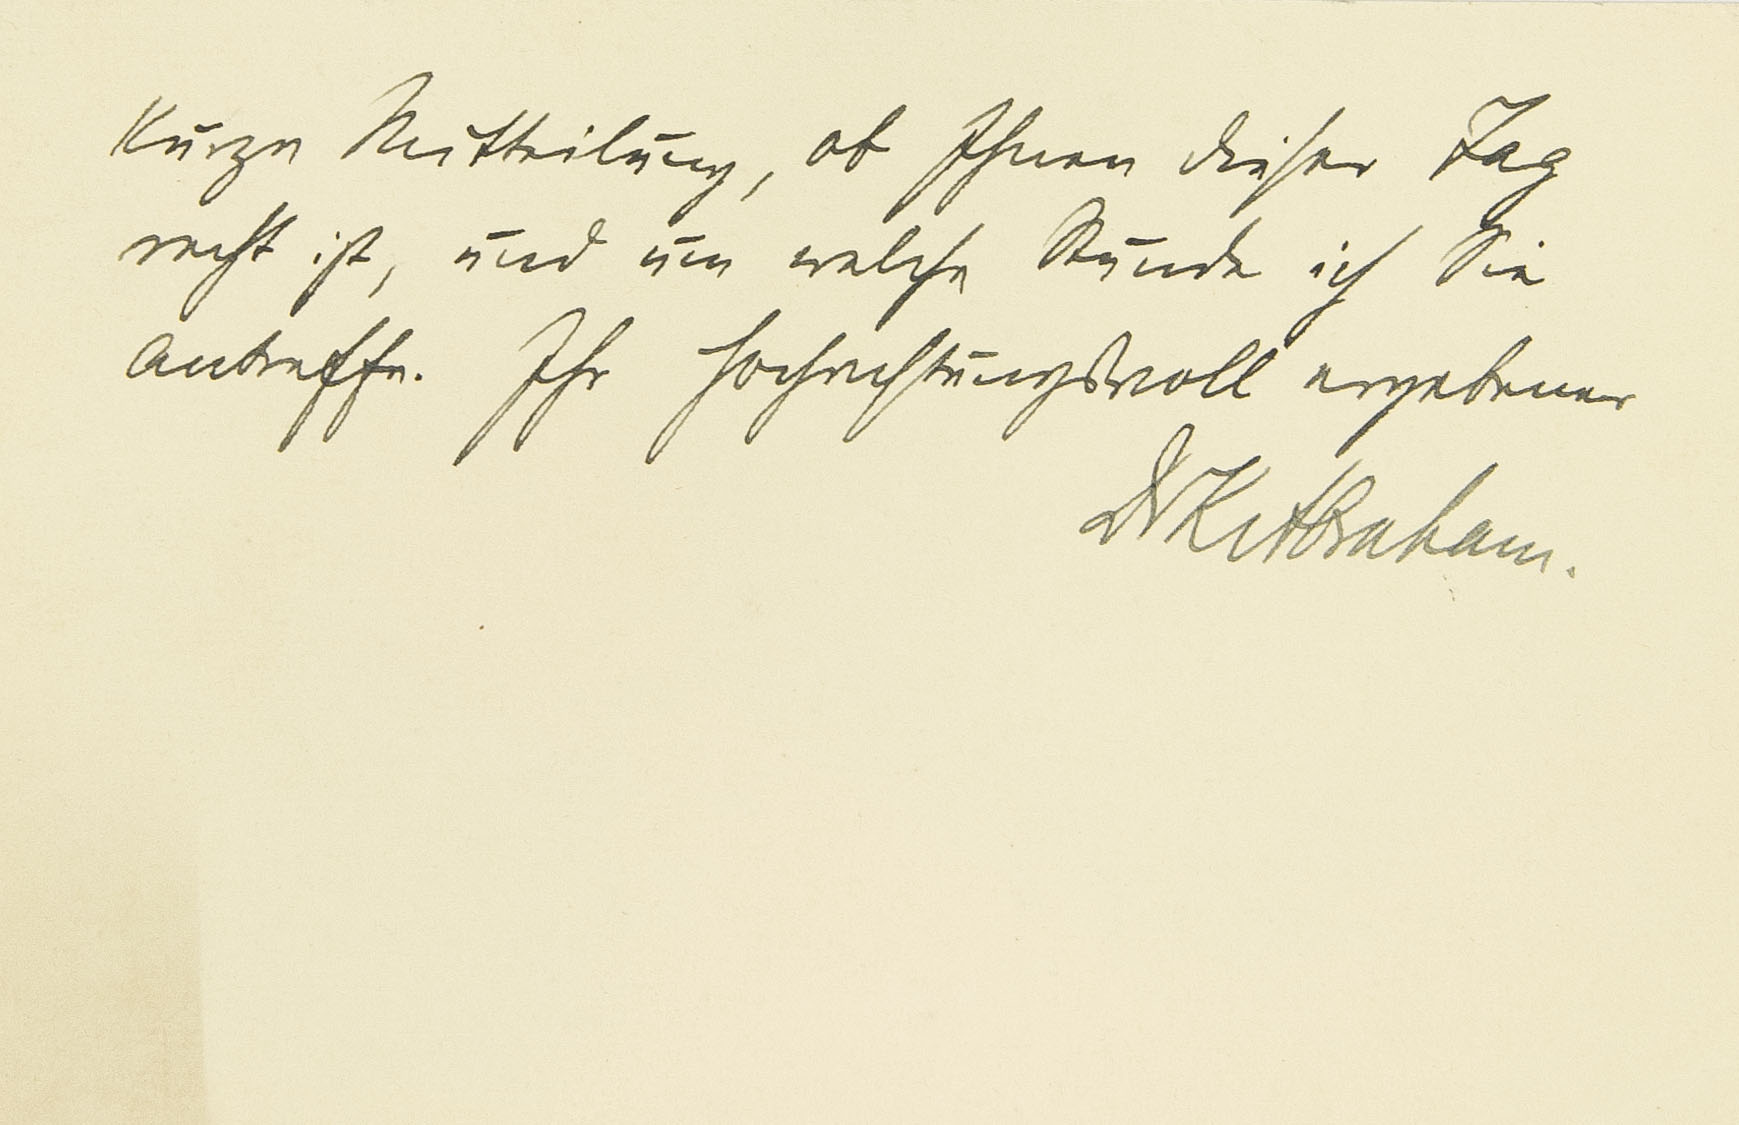 kurze Mitteilung, ob Ihnen dieser Tag
recht ist, und um welche Stunde ich Sie
antreffe. Ihr hochachtungsvoll ergebener
Dr K. Abraham.